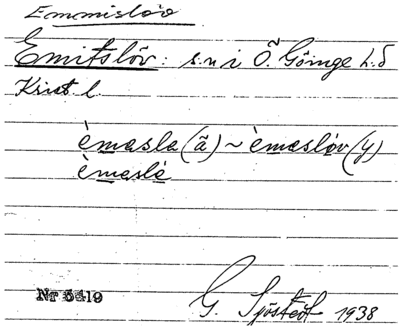 Emmislöv
Emitslöv: s. n i Ö. Göinge h. d
Krist l.
èmasla (ã) ~ èmeslöv (y)
èmesle
Nr 6419
G. Sjöstedt 1938